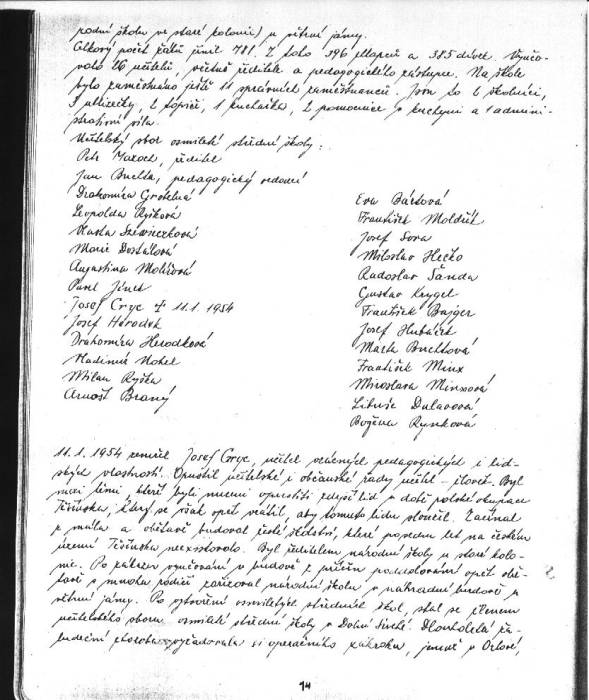 rodní školu ve staré kolonii) u větrní jámy.
Celkový počet žáků činil 781. Z toho 396 chlapců a 385 dívek. Vyučo-
valo 26 učitelů, včetně ředitele a pedagogického zástupce. Na škole
bylo zaměstnáno ještě 11 správních zaměstnanců. Jsou to 2 školníci,
3 uklízečky, 2 topiči, 1 kuchařka, 2 pomocnice v kuchyni a 1 admini-
strativní síla.
Učitelský sbor osmileté střední školy:
Petr Maroch, ředitel
Jan Buchta, pedagogický vedoucí
Drahomíra Grótelná
Leopolda Ryšková
Vlasta
Marie Dostálová
Augustina
Pavel
Josef Cryc ✝ 11.1. 1954
Josef Herodek
Drahomíra Herodková
Vladimír Nohel
Milan Ryška
Arnošt Braný
Eva Bártová
František
Josef Sova
Miloslav Hečko
Radoslav Šanda
Gustav Krygel
František Bajger
Josef Hubáček
Marta Buchtová
František Minx
Miroslava Minxová
Libuše Dulavová
Božena Rynková
11.1. 1954 zemřel Josef Cryc, učitel vzácných pedagogických i lid-
ských vlastností. Opustil učitelské i občanské řady učitel - člověk. Byl
mezi těmi, kteří byli nuceni opustiti zdejší lid v době polské okupace
Těšínska, který se však opět vrátil, aby tomuto lidu sloužil. Začínal
z mála a obětavě budoval české školství, které po sedm let na českém
území Těšínska neexistovalo. Byl ředitelem národní školy u staré kolo-
nie. Po zákazu vyučování v budově z příčin poddolování opět obě-
tavě s mnoha rodiči zařizoval národní školu v náhradní budově u
větrní jámy. Po vytvoření osmiletých středních škol, stal se členem
učitelského sboru osmileté střední školy v Dolní Suché. Dlouholetá ža-
ludeční choroba vyžadovala si operačního zákroku, jemuž v Orlové,
14